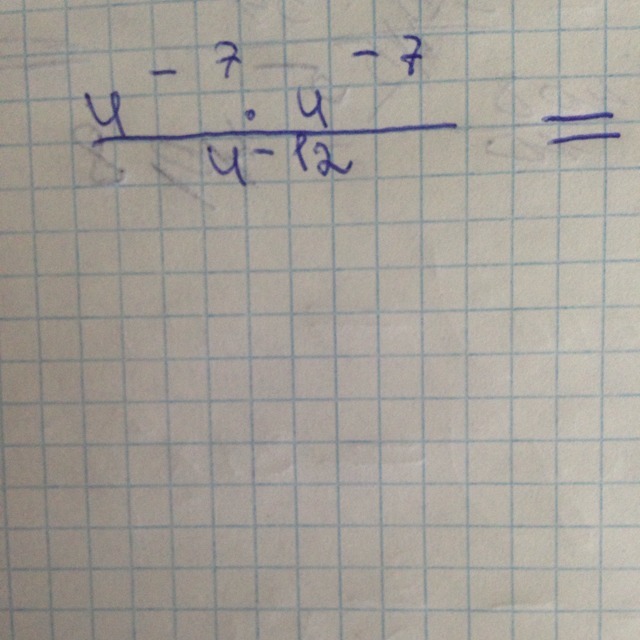 4⁻⁷ · 4⁻⁷ =
4-12